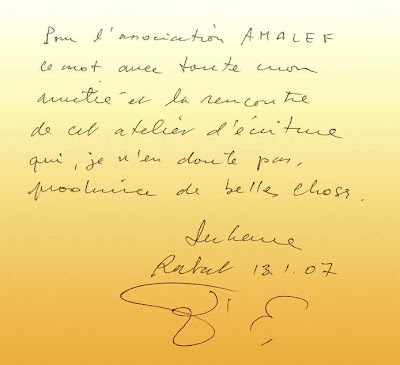 Pour l'association AMALEF
ce mot avec toute mon
amitié et la rencontre
de cet atelier d'écriture
qui, je n'en doute pas,
produira de belles choses.
Rabat 13.1.07